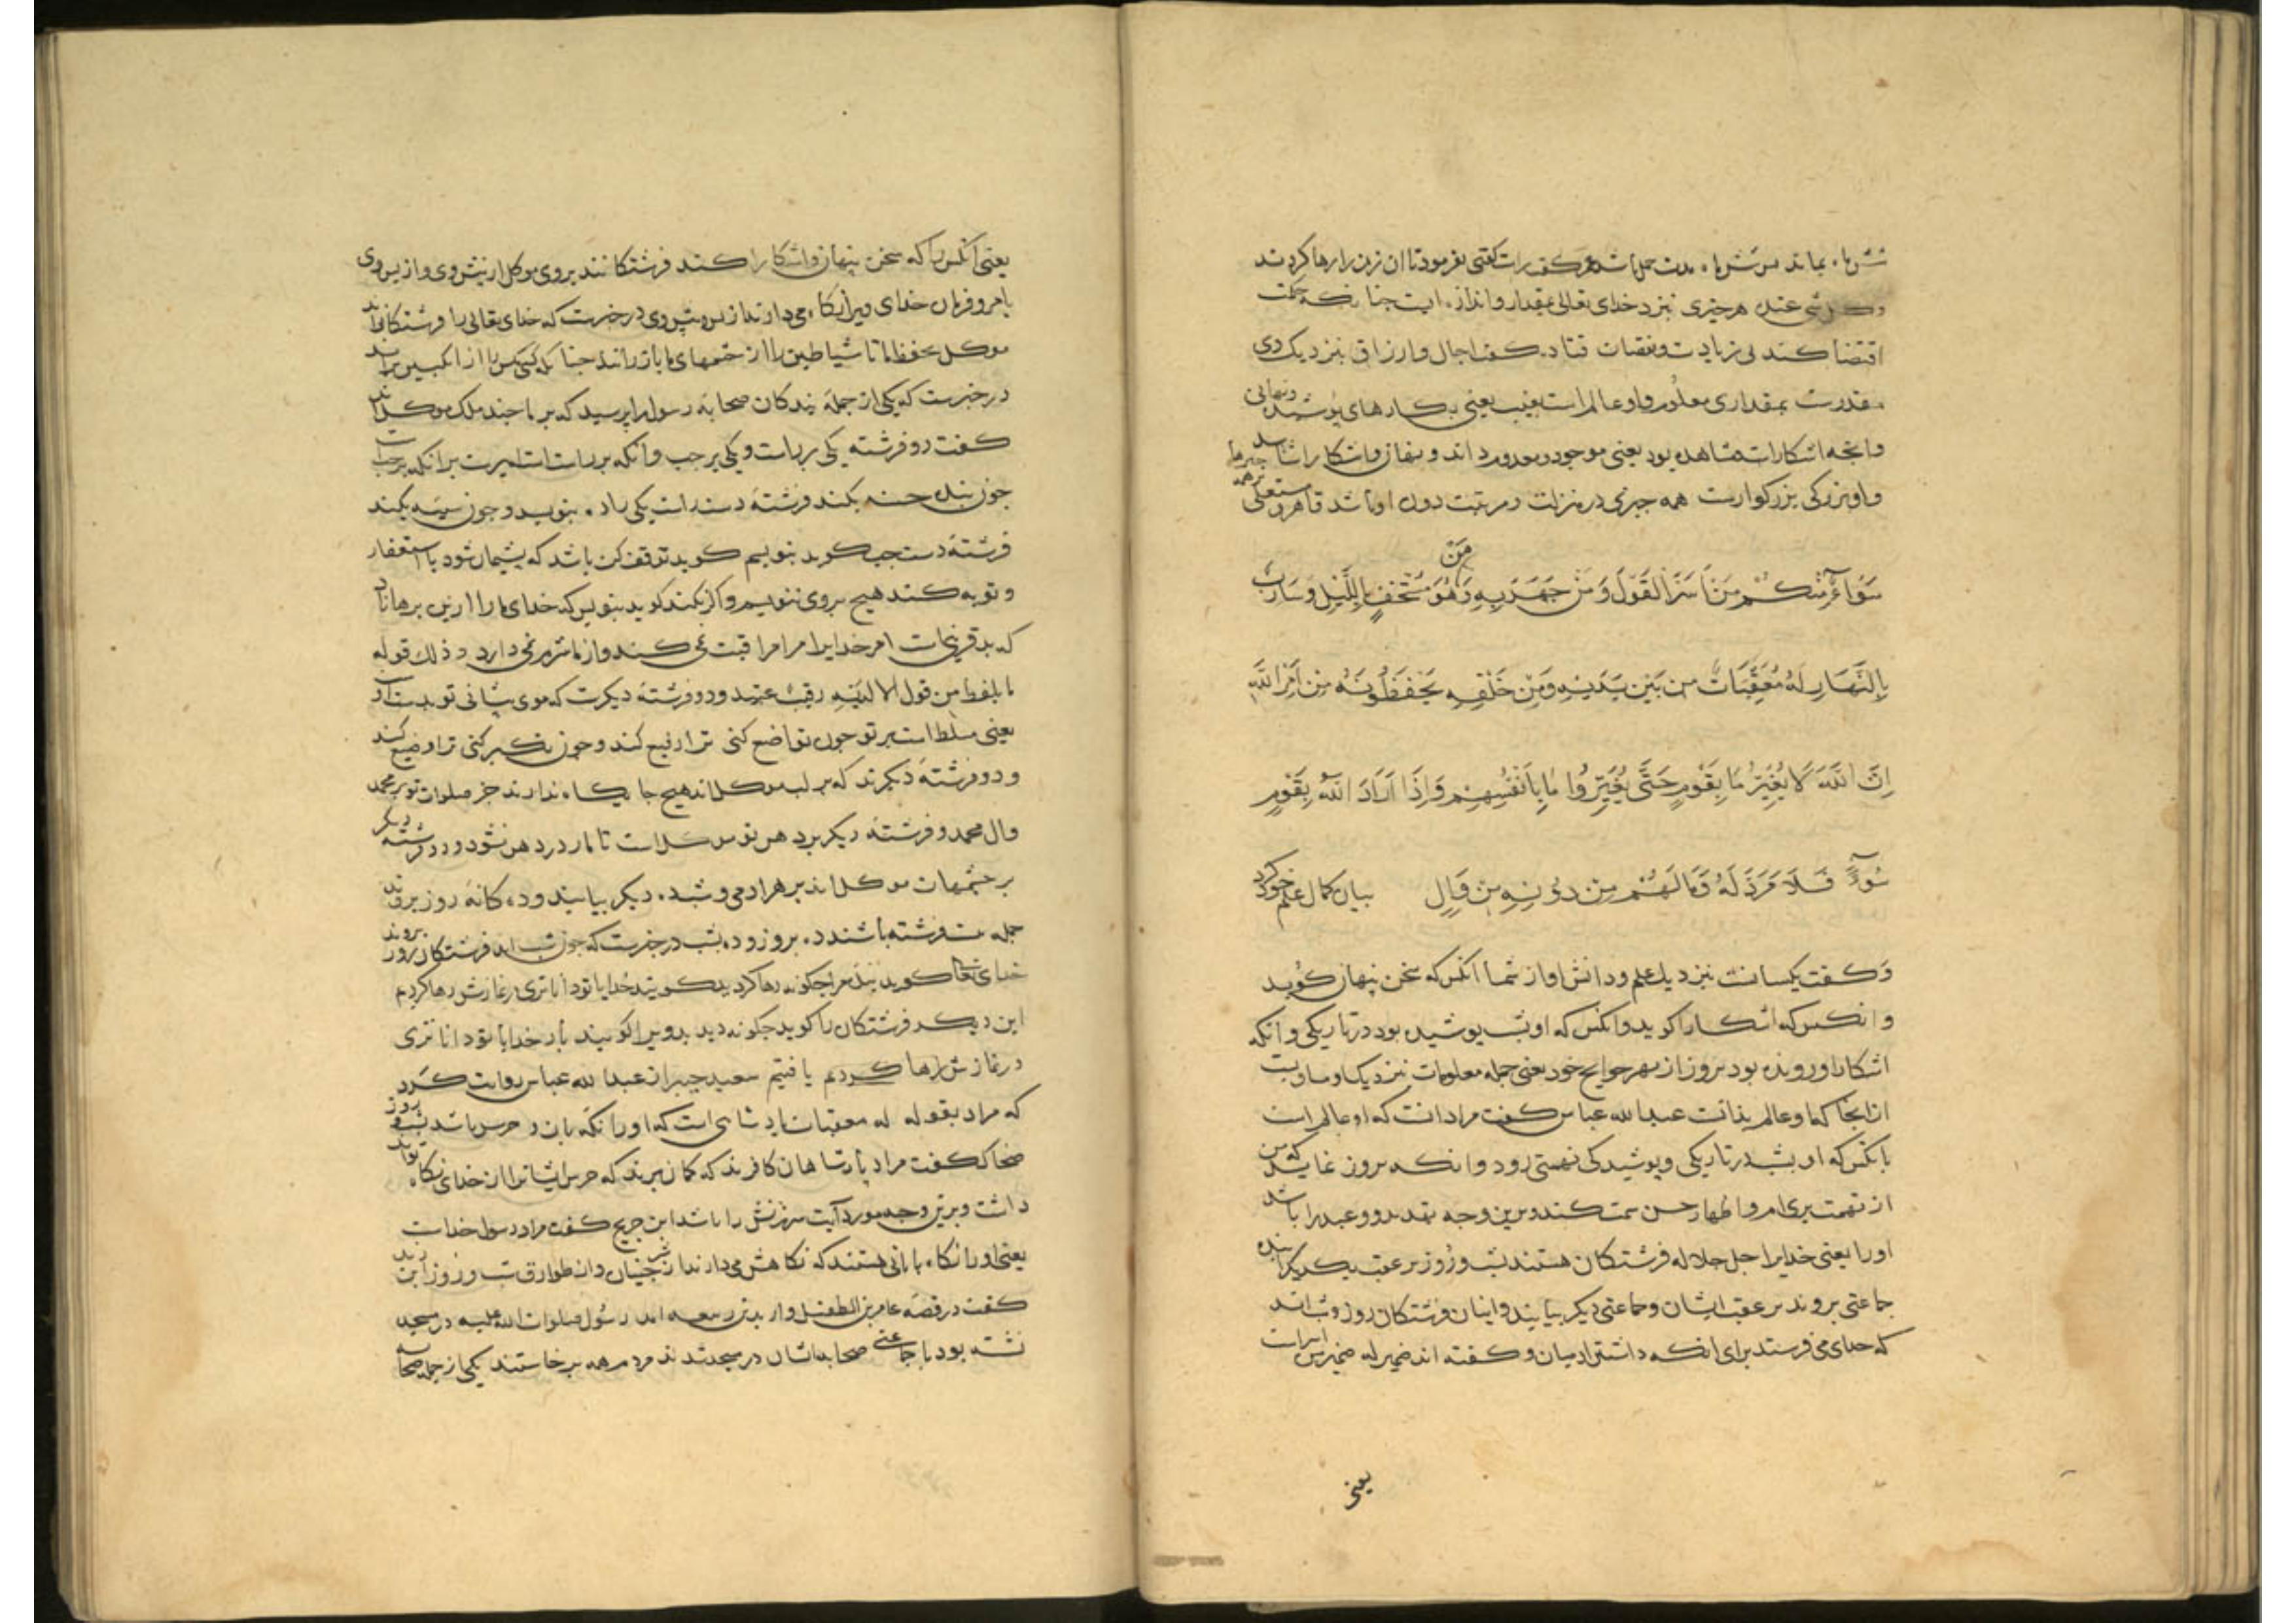 شش ماه بماند پس شش ماه مدت حمل باشد عمر گفت راست گفتی بفرمود تا ان زن را رها کردند
وکل شی عنده هر چیزی نزد خدای تعالی بمقدار و اندازه است چنانکه حکمت
اقتضا کند بی زیادت و نقصان قتاده گفت اجال و ارزاق بنزدیک وی
مقدرست بمقداری معلوم و او عالم است بغیب یعنی بکارهای پوشیده و نهانی
وانچه اشکارا مشاهده بود یعنی موجود و معدوم داند و نهان و اشکارا شناسد
و او بزرگی بزرگوارست همه چیزی در منزلت و مرتبت دون او باشد قاهر و مستعلی
سَوَاءٌ مِنْكُمْ مَنْ اَسَرَّ الْقَوْلَ وَمَنْ جَهَرَ بِهِ وَمَنْ هُوَ مُسْتَخْفٍ بِاللَّيْلِ وَسَارِبٌ
بِالنَّهَارِ لَهُ مُعَقِّبَاتٌ مِنْ بَيْنِ يَدَيْهِ وَمِنْ خَلْفِهِ يَحْفَظُونَهُ مِنْ اَمْرِ اللَّهِ
اِنَّ اللَّهَ لَا يُغَيِّرُ مَا بِقَوْمٍ حَتَّى يُغَيِّرُوا مَا بِاَنْفُسِهِمْ وَاِذَا اَرَادَ اللَّهُ بِقَوْمٍ
سُوءً فَلَا مَرَدَّ لَهُ وَمَا لَهُمْ مِنْ دُونِهِ مِنْ وَالٍ بیان کمال علم خود کرد
و گفت یکسانست بنزدیک علم و دانش او از شما انکس که سخن پنهان گوید
وانکس که اشکارا گوید وانکس که او بشب پوشیده بود در تاریکی وانکه
اشکارا و رونده بود بروز از بهر حوایج خود یعنی جمله معلومات بنزدیک او مساویست
ازانجا که او عالم بذاتست عبدالله عباس گفت مراد انست که او عالم است
بانکس که او بشب در تاریکی و پوشیدگی تهمتی رود وانکه بروز نماید که من
از تهمت بری ام و اظهار حسن سمت کند و برین وجه تهدید و وعید را باشد
او را یعنی خدایرا جل جلاله فرشتگان هستند بشب و روز بر عقب یکدیگر اینده
جماعتی بروند بر عقب ایشان و جماعتی دیگر بیایند و اینان فرشتگان روز و شب اند
که خدای می فرستد برای نگه داشتن ادمیان و گفته اند ضمیر له ضمیر من است
یعنی
یعنی انکس را که سخن پنهان و اشکارا کند فرشتگانند بر وی موکل از پیش وی و از پس وی
بامر و فرمان خدای ویرا نگاه می دارند از پس و پیش وی در خبرست که خدای تعالی را فرشتگانند
موکل بحفظ ما تا شیاطین را از چشمهای ما باز رانند چنانکه کسی مگس را از انگبین براند
در خبرست که یکی از جمله بندگان صحابه رسول را پرسید که بر ما چند ملک موکل اند
گفت دو فرشته یکی بر راست و یکی بر چپ وانکه بر راست است امیرست بر انکه بر چپ است
چون بنده حسنه بکند فرشته دست راست یکی را ده بنویسد و چون سیئه بکند
فرشته دست چپ گوید بنویسم گوید توقف کن باشد که پشیمان شود یا استغفار
و توبه کند هیچ بر وی ننویسیم و اگر نکند گوید بنویس که خدای ما را ازین برهاناد
که بد قرینی است امر خدایرا مراقبت نمی کند و از ما شرم نمی دارد و ذلک قوله
ما یلفظ من قول الا لدیه رقیب عتید و دو فرشته دیگرست که موی پیشانی تو بدست او
یعنی مسلط است بر تو چون تواضع کنی ترا رفیع کند و چون تکبر کنی ترا وضیع کند
و دو فرشته دیگرند که بر لب موکل اند هیچ جا نگاه ندارند جز صلوات تو بر محمد
و ال محمد و فرشته دیگر بر دهن تو موکل است تا مار در دهن نشود و دو فرشته دیگر
بر چشمهات موکل اند بر هر ادمی و شبه دیگر بیایند و دهگانه روز بروند
جمله بیست فرشته باشند ده بروز و ده بشب در خبرست که چون شب اید فرشتگان روز بروند
خدای تعالی گوید بنده مرا چگونه رها کردید گویند خدایا تو داناتری در نمازش رها کردیم
این دیگر فرشتگان را گوید چگونه دیدید ویرا گویند بار خدایا تو داناتری
در نمازش رها کردیم یافتیم سعید جبیر از عبدالله عباس روایت کرد
که مراد بقوله له معقبات پادشاهی است که او را نگه بان و حرس باشد بشب و روز
ضحاک گفت مراد پادشاهان کافرند که گمان برند که حرس ایشانرا از خدای نگاه تواند
داشت و برین وجه مورد آیت سرزنش را باشد ابن جریج گفت مراد رسول خداست
یعنی او را نگاه بانانی هستند که نگاهش می دارند از شر جنیان و از طوارق شب و روز ابن زید
گفت در قصه عامر بن الطفیل و اربد بن ربیعه امد رسول صلوات الله علیه در مسجد
نشسته بود با جماعتی صحابه ایشان در مسجد شدند مردم همه برخاستند یکی از جمله صحابه